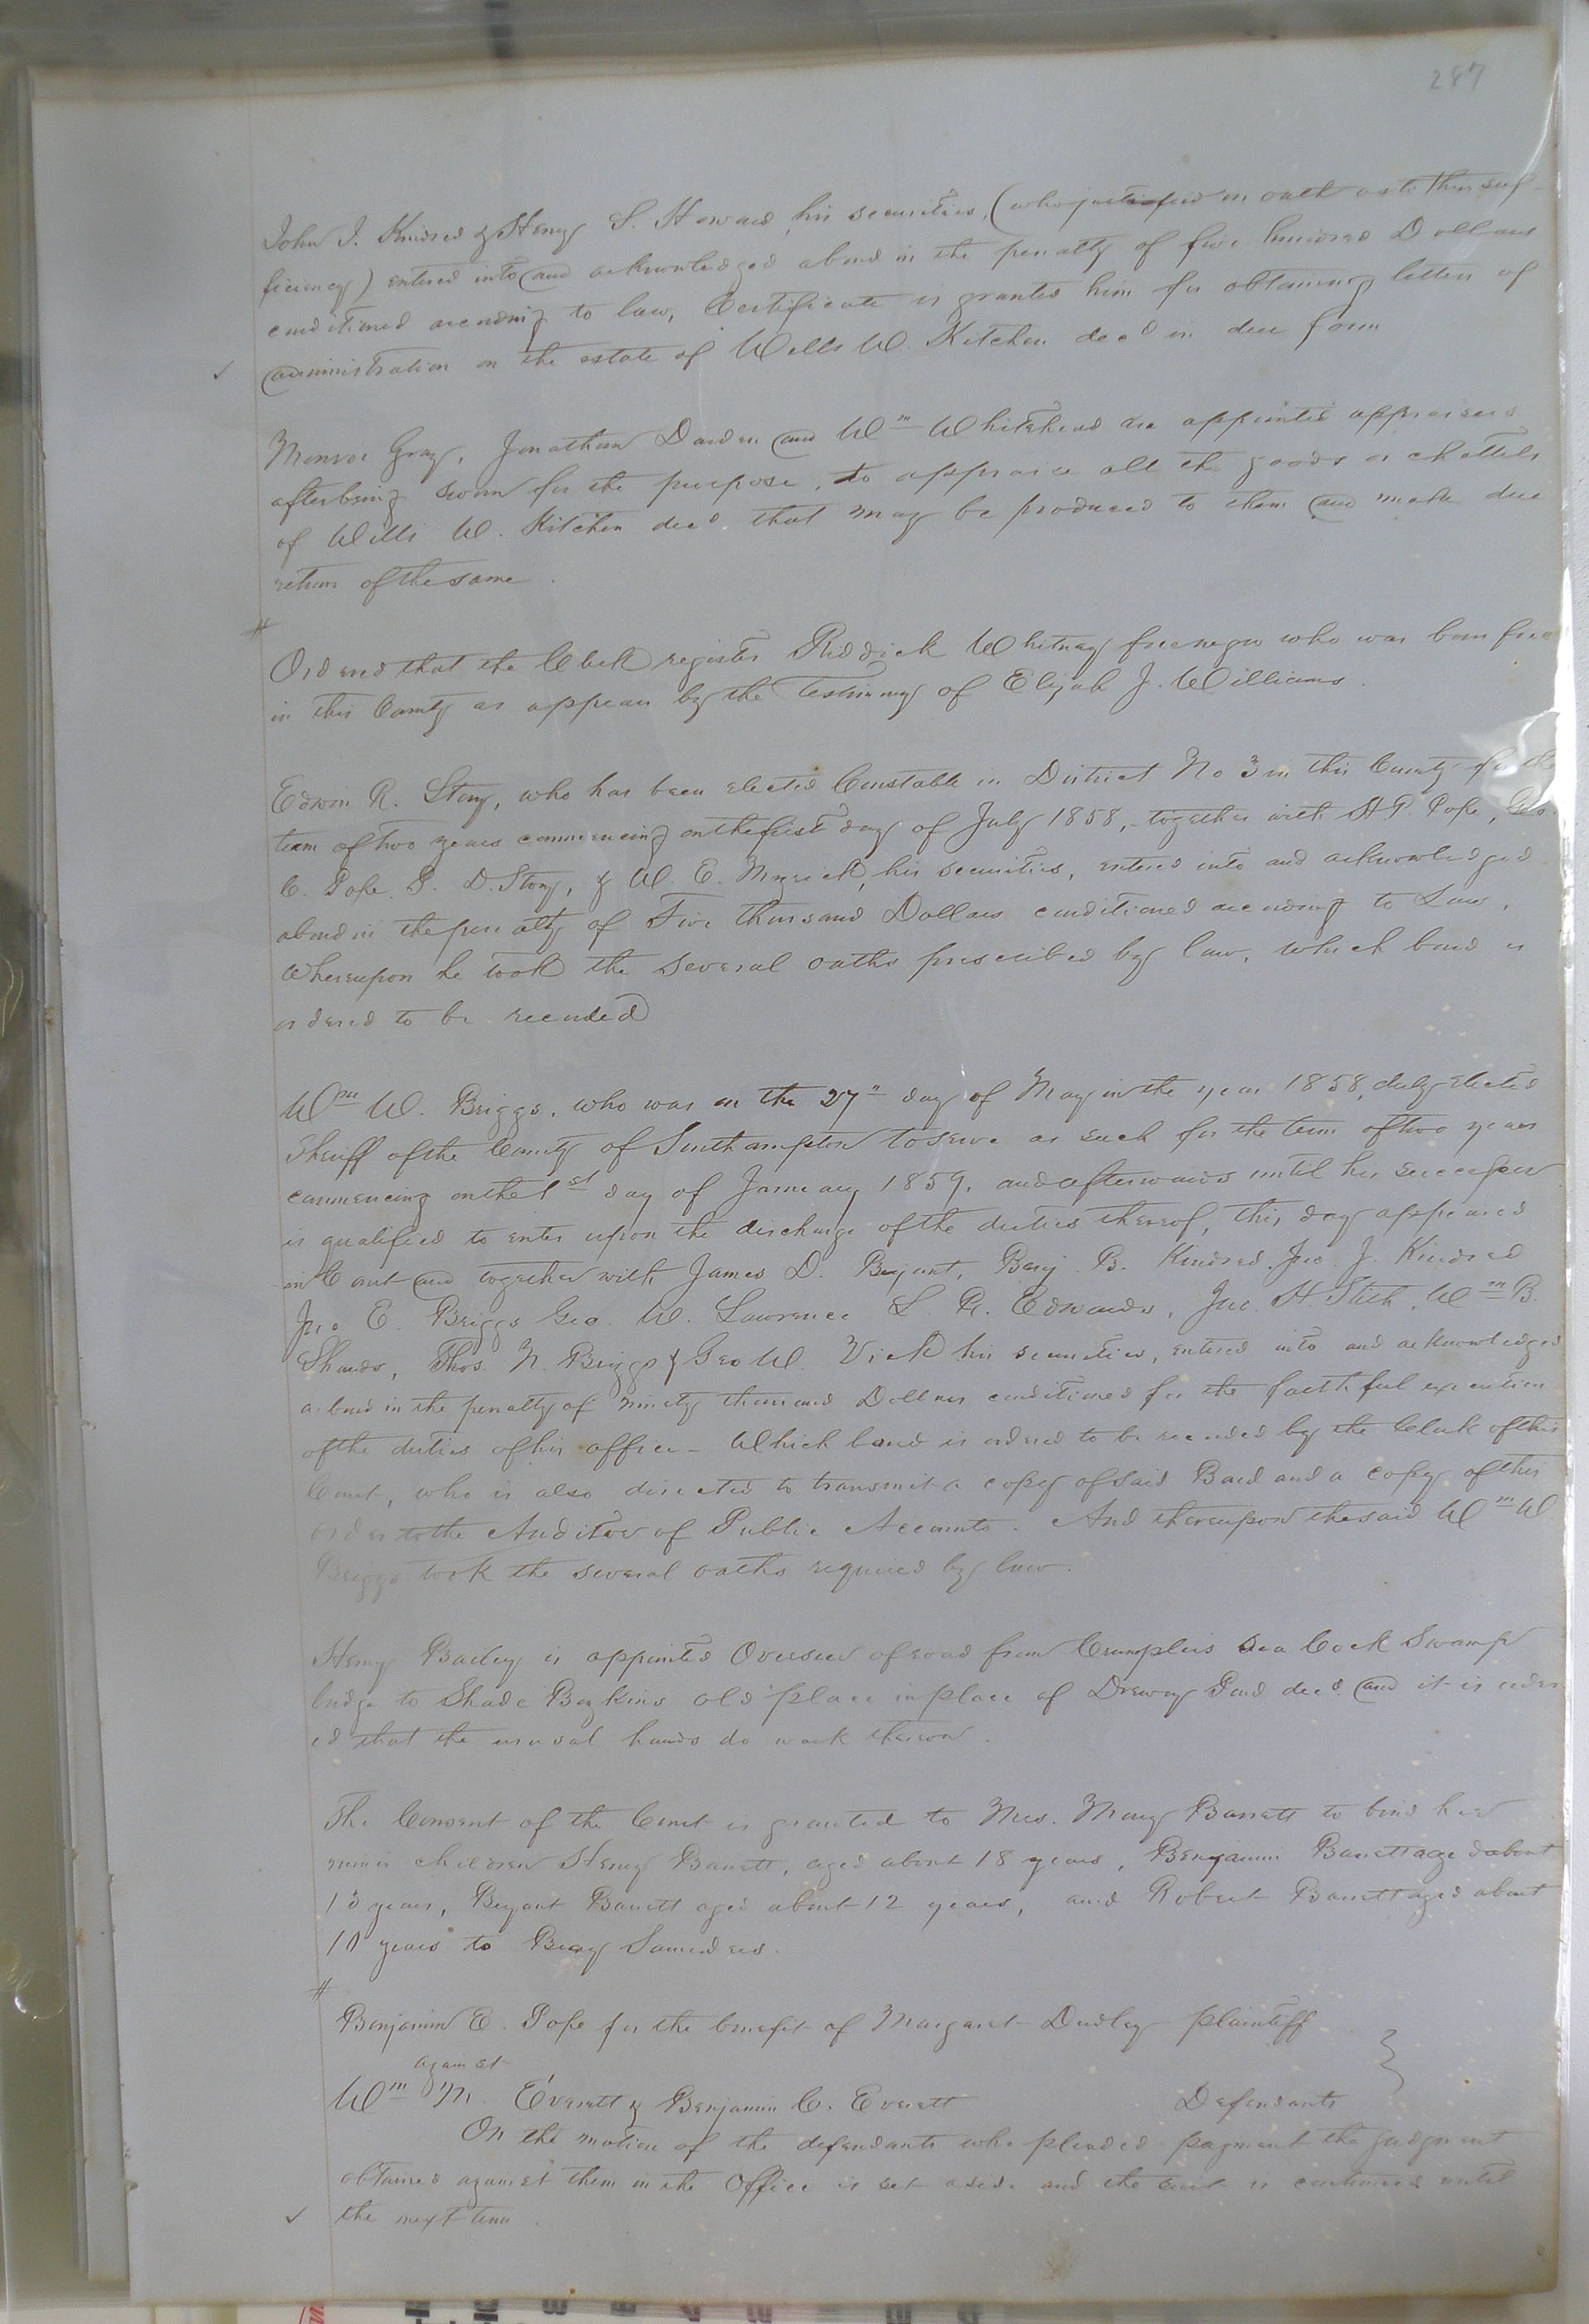 287
John J. Kindred & Henry S. Howard his securities, (who justified on oath as to their suf-
ficiency) entered into and acknowledged a bond in the penalty of five hundred Dollars
conditioned according to law, Certificate is granted him for obtaining letters of
✓ administration on the estate of Wills W. Kitchen decd in due form
Monroe Gray, Jonathan Darden and Wm Whitehead are appointed appraisers
after being sworn for the purpose, to appraise all the goods or chattels
of Wills W. Kitchen decd that may be produced to them and make due
return of the same.
#
Ordered that the Clerk register Riddick Whitney free negro who was born free
in this County as appears by the Testimony of Elijah J. Williams.
Edwin R. Story, who has been elected Constable in District No 3 in this County for the
term of two years commencing on the first day of July 1858, together with H P. Pope,
C. Pope S. D. Story, & W. E. Myrick, his securities, entered into and acknowledged
a bond in the penalty of Five thousand Dollars conditioned according to Law,
Whereupon he took the several oaths prescribed by law, which bond is
ordered to be recorded
Wm W. Briggs, who was on the 27" day of May in the year 1858, duly elected
Sheriff of the County of Southampton to serve as such for the term of two years
commencing on the 1st day of January 1859, and afterwards until his successor
is qualified to enter upon the discharge of the duties thereof, this day appeared
in Court and together with James D. Bryant, Benj. B. Kindred, Jno. J. Kindred
Jno E. Briggs Geo. W. Lawrence L. R. Edwards, Jno. H. Stith, Wm B.
Shands, Thos. N. Briggs & Geo W. Vick his securities, entered into and acknowledged
a bond in the penalty of ninety thousand Dollars conditioned for the faithful execution
of the duties of his office - Which bond is ordered to be recorded by the Clerk of this
Court, who is also directed to transmit a copy of said Bond and a copy of this
order to the Auditor of Public Accounts. And thereupon the said Wm W.
Briggs took the several oaths required by law.
Henry Bailey is appointed Overseer of road from Crumplers Sea Cock Swamp
bridge to Shade Boykins old place in place of Drewry Pond decd. and it is order
ed that the usual hands do work thereon.
The Consent of the Court is granted to Mrs. Mary Barrett to bind her
minor children Henry Barrett, aged about 18 years, Benjamin Barrett aged about
13 years, Bryant Barrett aged about 12 years, and Robert Barrett aged about
10 years to Saunders.
#
Benjamin E. Pope for the benefit of Margaret Dudley plaintiff
against
Wm M. Everett & Benjamin C. Everett Defendants
On the motion of the defendants who pleaded payment the judgment
obtained against them in the Office is set aside and the suit is continued until
✓ the next term.